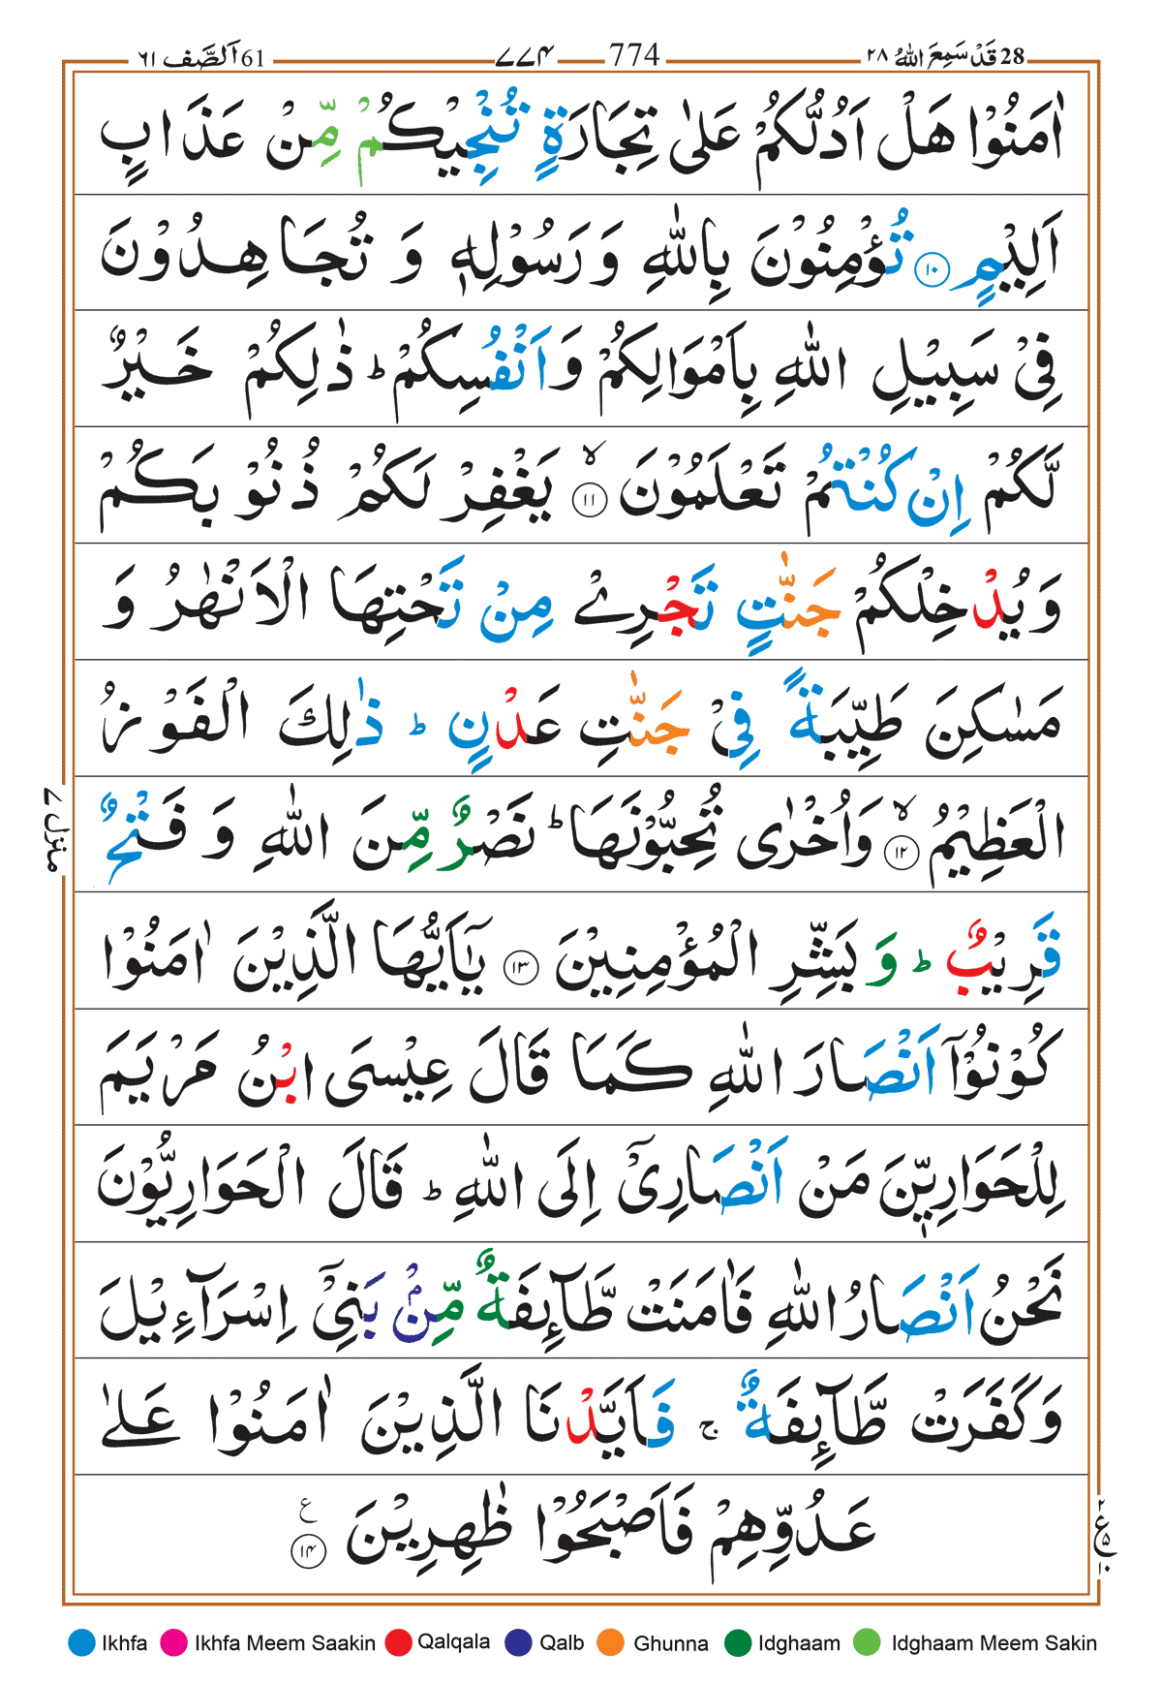 28 قَدْ سَمِعَ اللّٰهُ ٢٨
774 ــ ٧٧٤
61 اَلصَّف ٦١
اٰمَنُوْا هَلْ اَدُلُّكُمْ عَلٰى تِجَارَةٍ تُنْجِيْكُمْ مِّنْ عَذَابٍ
اَلِيْمٍ ١٠ تُؤْمِنُوْنَ بِاللّٰهِ وَ رَسُوْلِهٖ وَ تُجَاهِدُوْنَ
فِىْ سَبِيْلِ اللّٰهِ بِاَمْوَالِكُمْ وَ اَنْفُسِكُمْ ؕ ذٰلِكُمْ خَيْرٌ
لَّكُمْ اِنْ كُنْتُمْ تَعْلَمُوْنَ ۙ ١١ يَغْفِرْ لَكُمْ ذُنُوْ بَكُمْ
وَ يُدْ خِلْكُمْ جَنّٰتٍ تَجْرِىْ مِنْ تَحْتِهَا الْاَنْهٰرُ وَ
مَسٰكِنَ طَيِّبَةً فِىْ جَنّٰتِ عَدْنٍ ؕ ذٰلِكَ الْفَوْ زُ
الْعَظِيْمُ ۙ ١٢ وَاُخْرٰى تُحِبُّوْنَهَا ؕ نَصْرٌ مِّنَ اللّٰهِ وَ فَتْحٌ
قَرِيْبٌ ؕ وَ بَشِّرِ الْمُؤْمِنِيْنَ ١٣ يٰۤاَيُّهَا الَّذِيْنَ اٰمَنُوْا
كُوْنُوْۤا اَنْصَارَ اللّٰهِ كَمَا قَالَ عِيْسَى ابْنُ مَرْيَمَ
لِلْحَوَارِيّٖنَ مَنْ اَنْصَارِىْۤ اِلَى اللّٰهِ ؕ قَالَ الْحَوَارِيُّوْنَ
نَحْنُ اَنْصَارُ اللّٰهِ فَاٰمَنَتْ طَّآٮِٕفَةٌ مِّنْۢ بَنِىْۤ اِسْرَآءِيْلَ
وَكَفَرَتْ طَّآٮِٕفَةٌ ۚ فَاَيَّدْنَا الَّذِيْنَ اٰمَنُوْا عَلٰى
عَدُوِّهِمْ فَاَصْبَحُوْا ظٰهِرِيْنَ ١٤ ع
منزل ٧
٢ ع ٥ ١٠
Ikhfa Ikhfa Meem Saakin Qalqala Qalb Ghunna Idghaam Idghaam Meem Sakin